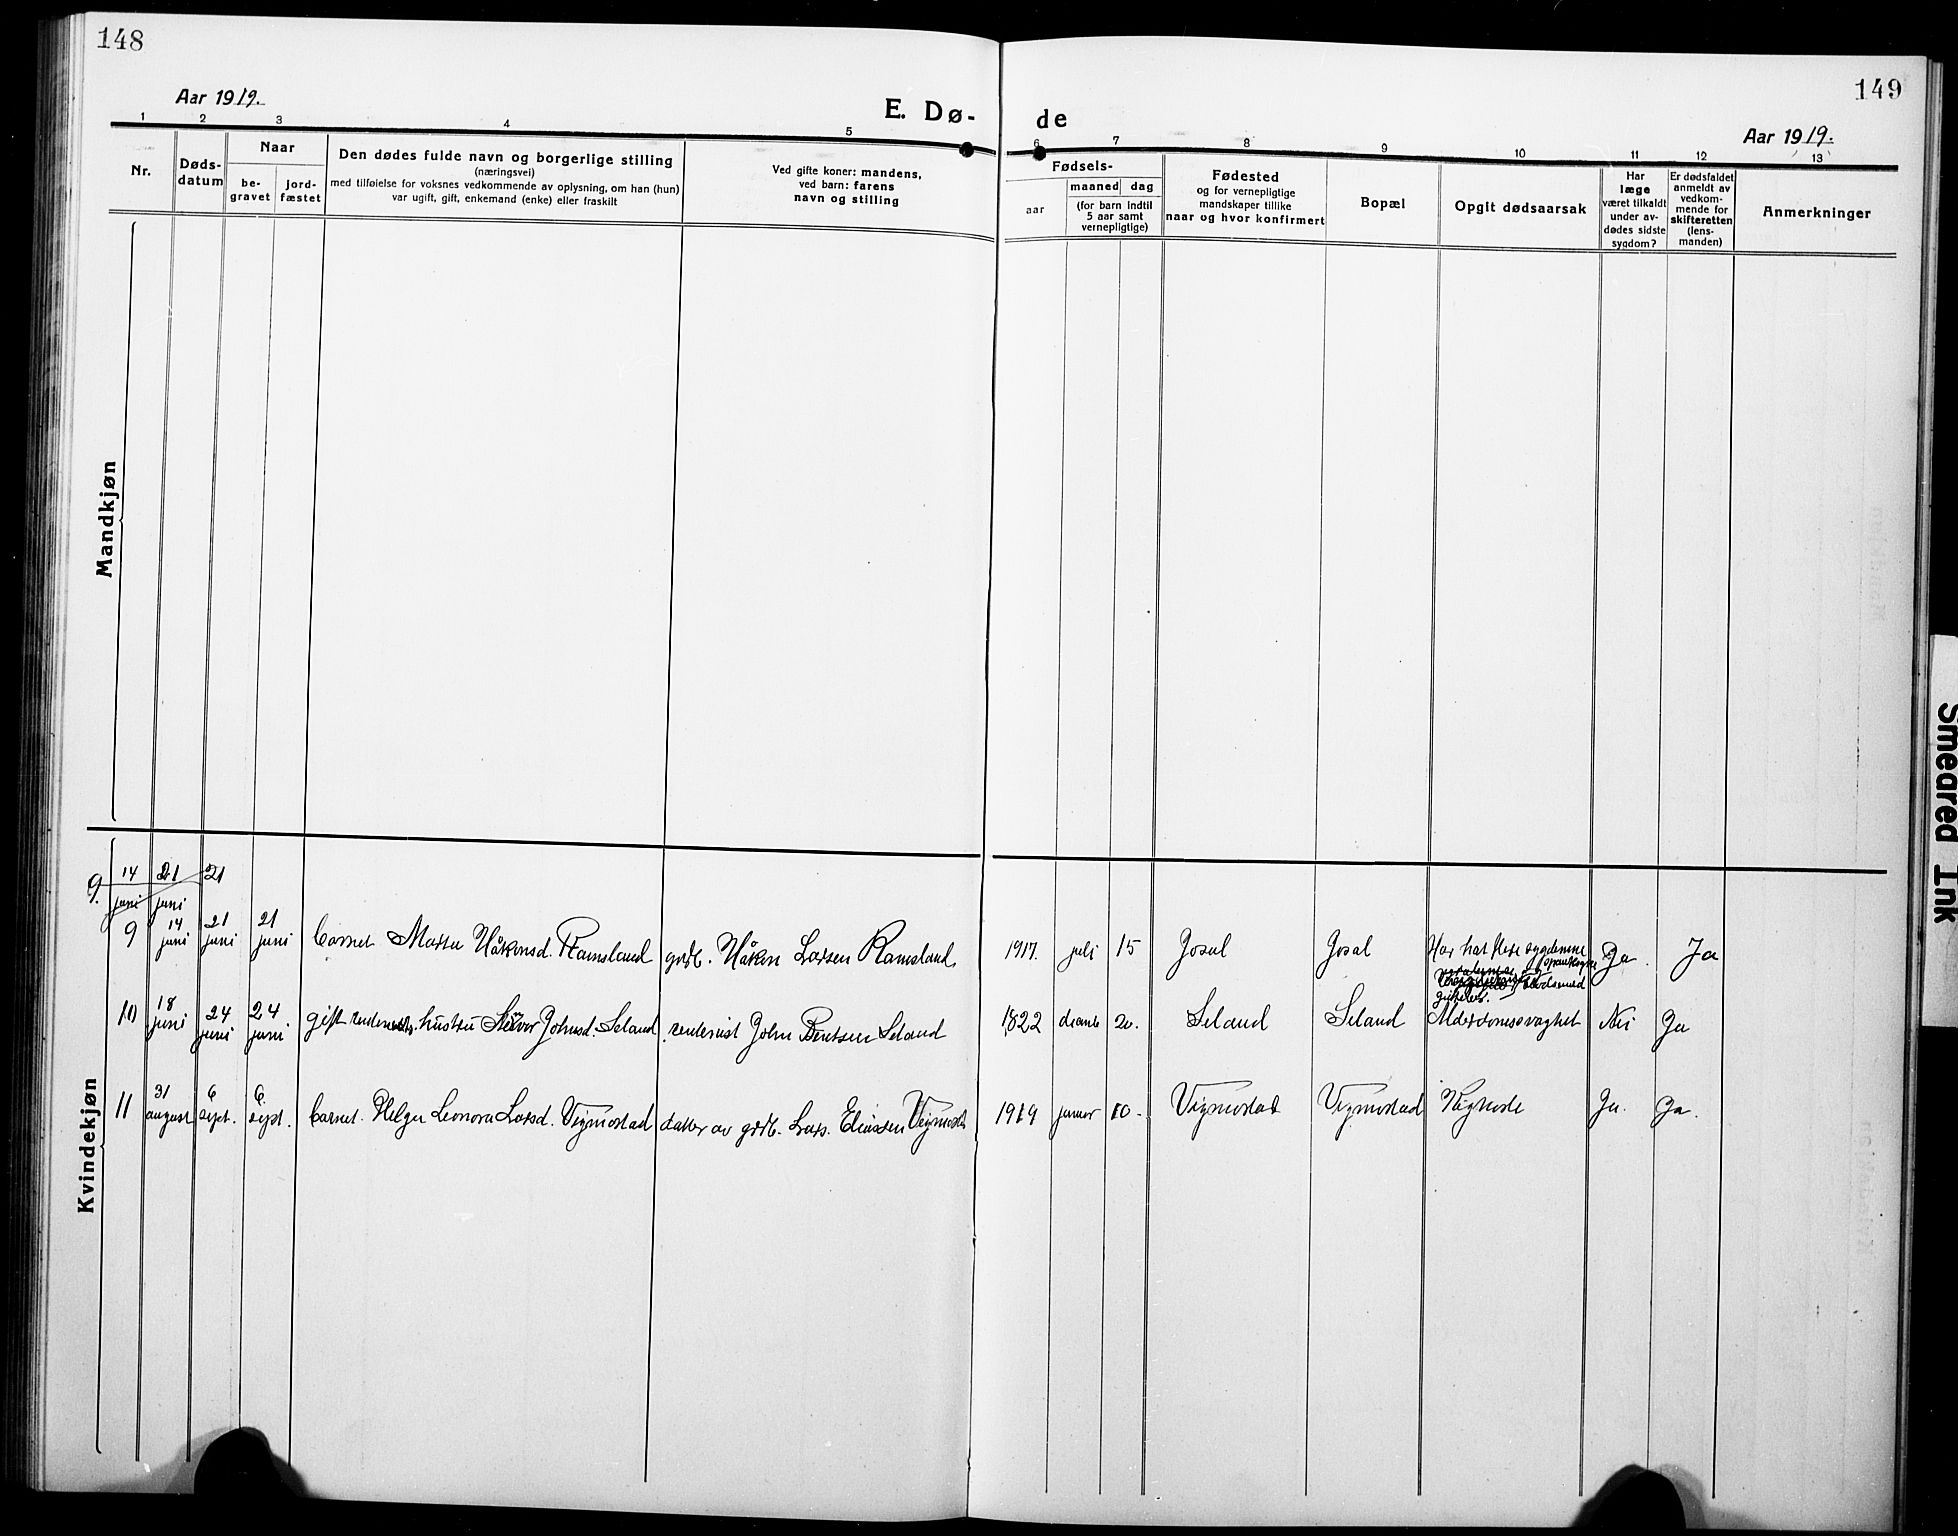 148
Aar 1919.
E. Dø-
1 2 3 4 5
Nr.
Døds-
datum
Naar
be-
gravet
jord-
fæstet
Den dødes fulde navn og borgerlige stilling
(næringsvei)
med tilføielse for voksnes vedkommende av oplysning, om han (hun)
var ugift, gift, enkemand (enke) eller fraskilt
Ved gifte koner: mandens,
ved barn: farens
navn og stilling
Mandkjøn
Kvindekjøn
9. 14 juni 21 juni 21
9 14 juni 21 juni 21 juni Barnet Marta Håkonsd. Ramsland gbr. Håkon Larsen Ramsland
10 18 juni 24 juni 24 juni gift hustru Johnsd. Seland rentenist John Berntsen Seland
11 31 august 6 sept. 6 sept. Barnet Helga Leonora Larsd. Vigmostad datter av gbr. Lars Eliassen Vigmostad
149
de
Aar 1919.
6 7 8 9 10 11 12 13
Fødsels-
aar
maaned dag
(for barn indtil
5 aar samt
vernepligtige)
Fødested
og for vernepligtige
mandskaper tillike
naar og hvor konfirmert
Bopæl
Opgit dødsaarsak
Har
læge
været tilkaldt
under av-
dødes sidste
sygdom?
Er dødsfaldet
anmeldt av
vedkom-
mende for
skifteretten
(lens-
manden)
Anmerkninger
1917. juli 15 Josal Josal Har hat flere sygdomme Ja. Ja
1822 20. Seland Seland Alderdomssvaghet Nei Ja
1919 januar 10. Vigmostad Vigmostad Kighoste Ja. Ja.
Smeared Ink